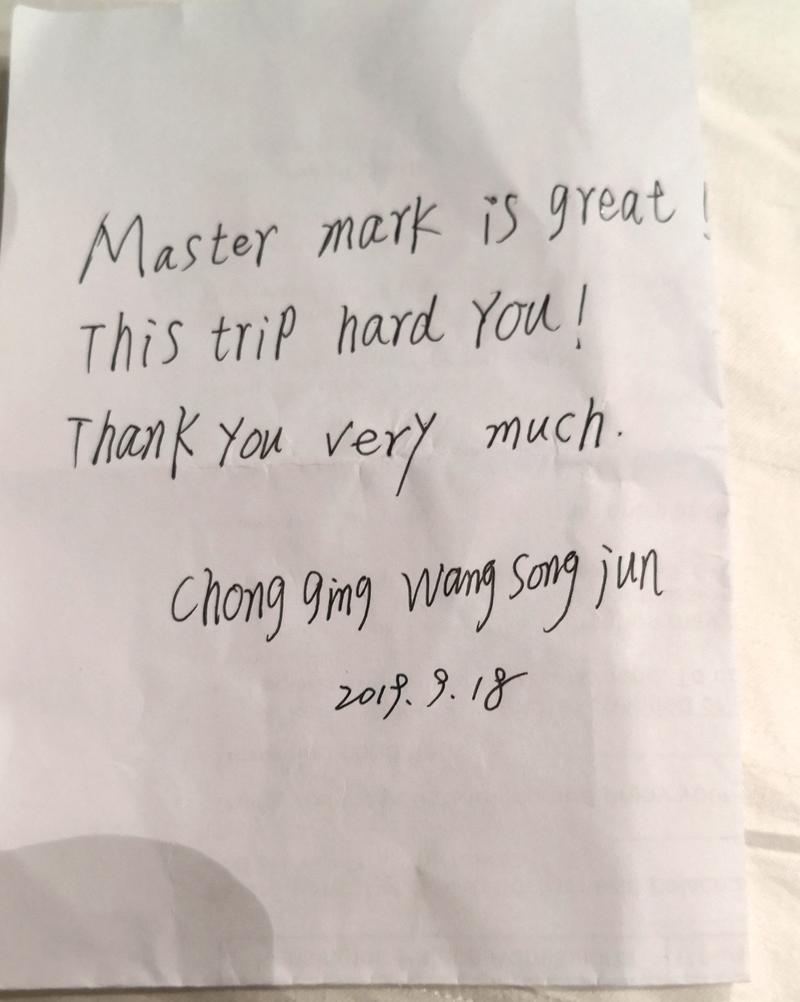 Master mark is great!
This trip hard You!
Thank You very much.
Chong qing Wang Song jun
2019. 9. 18